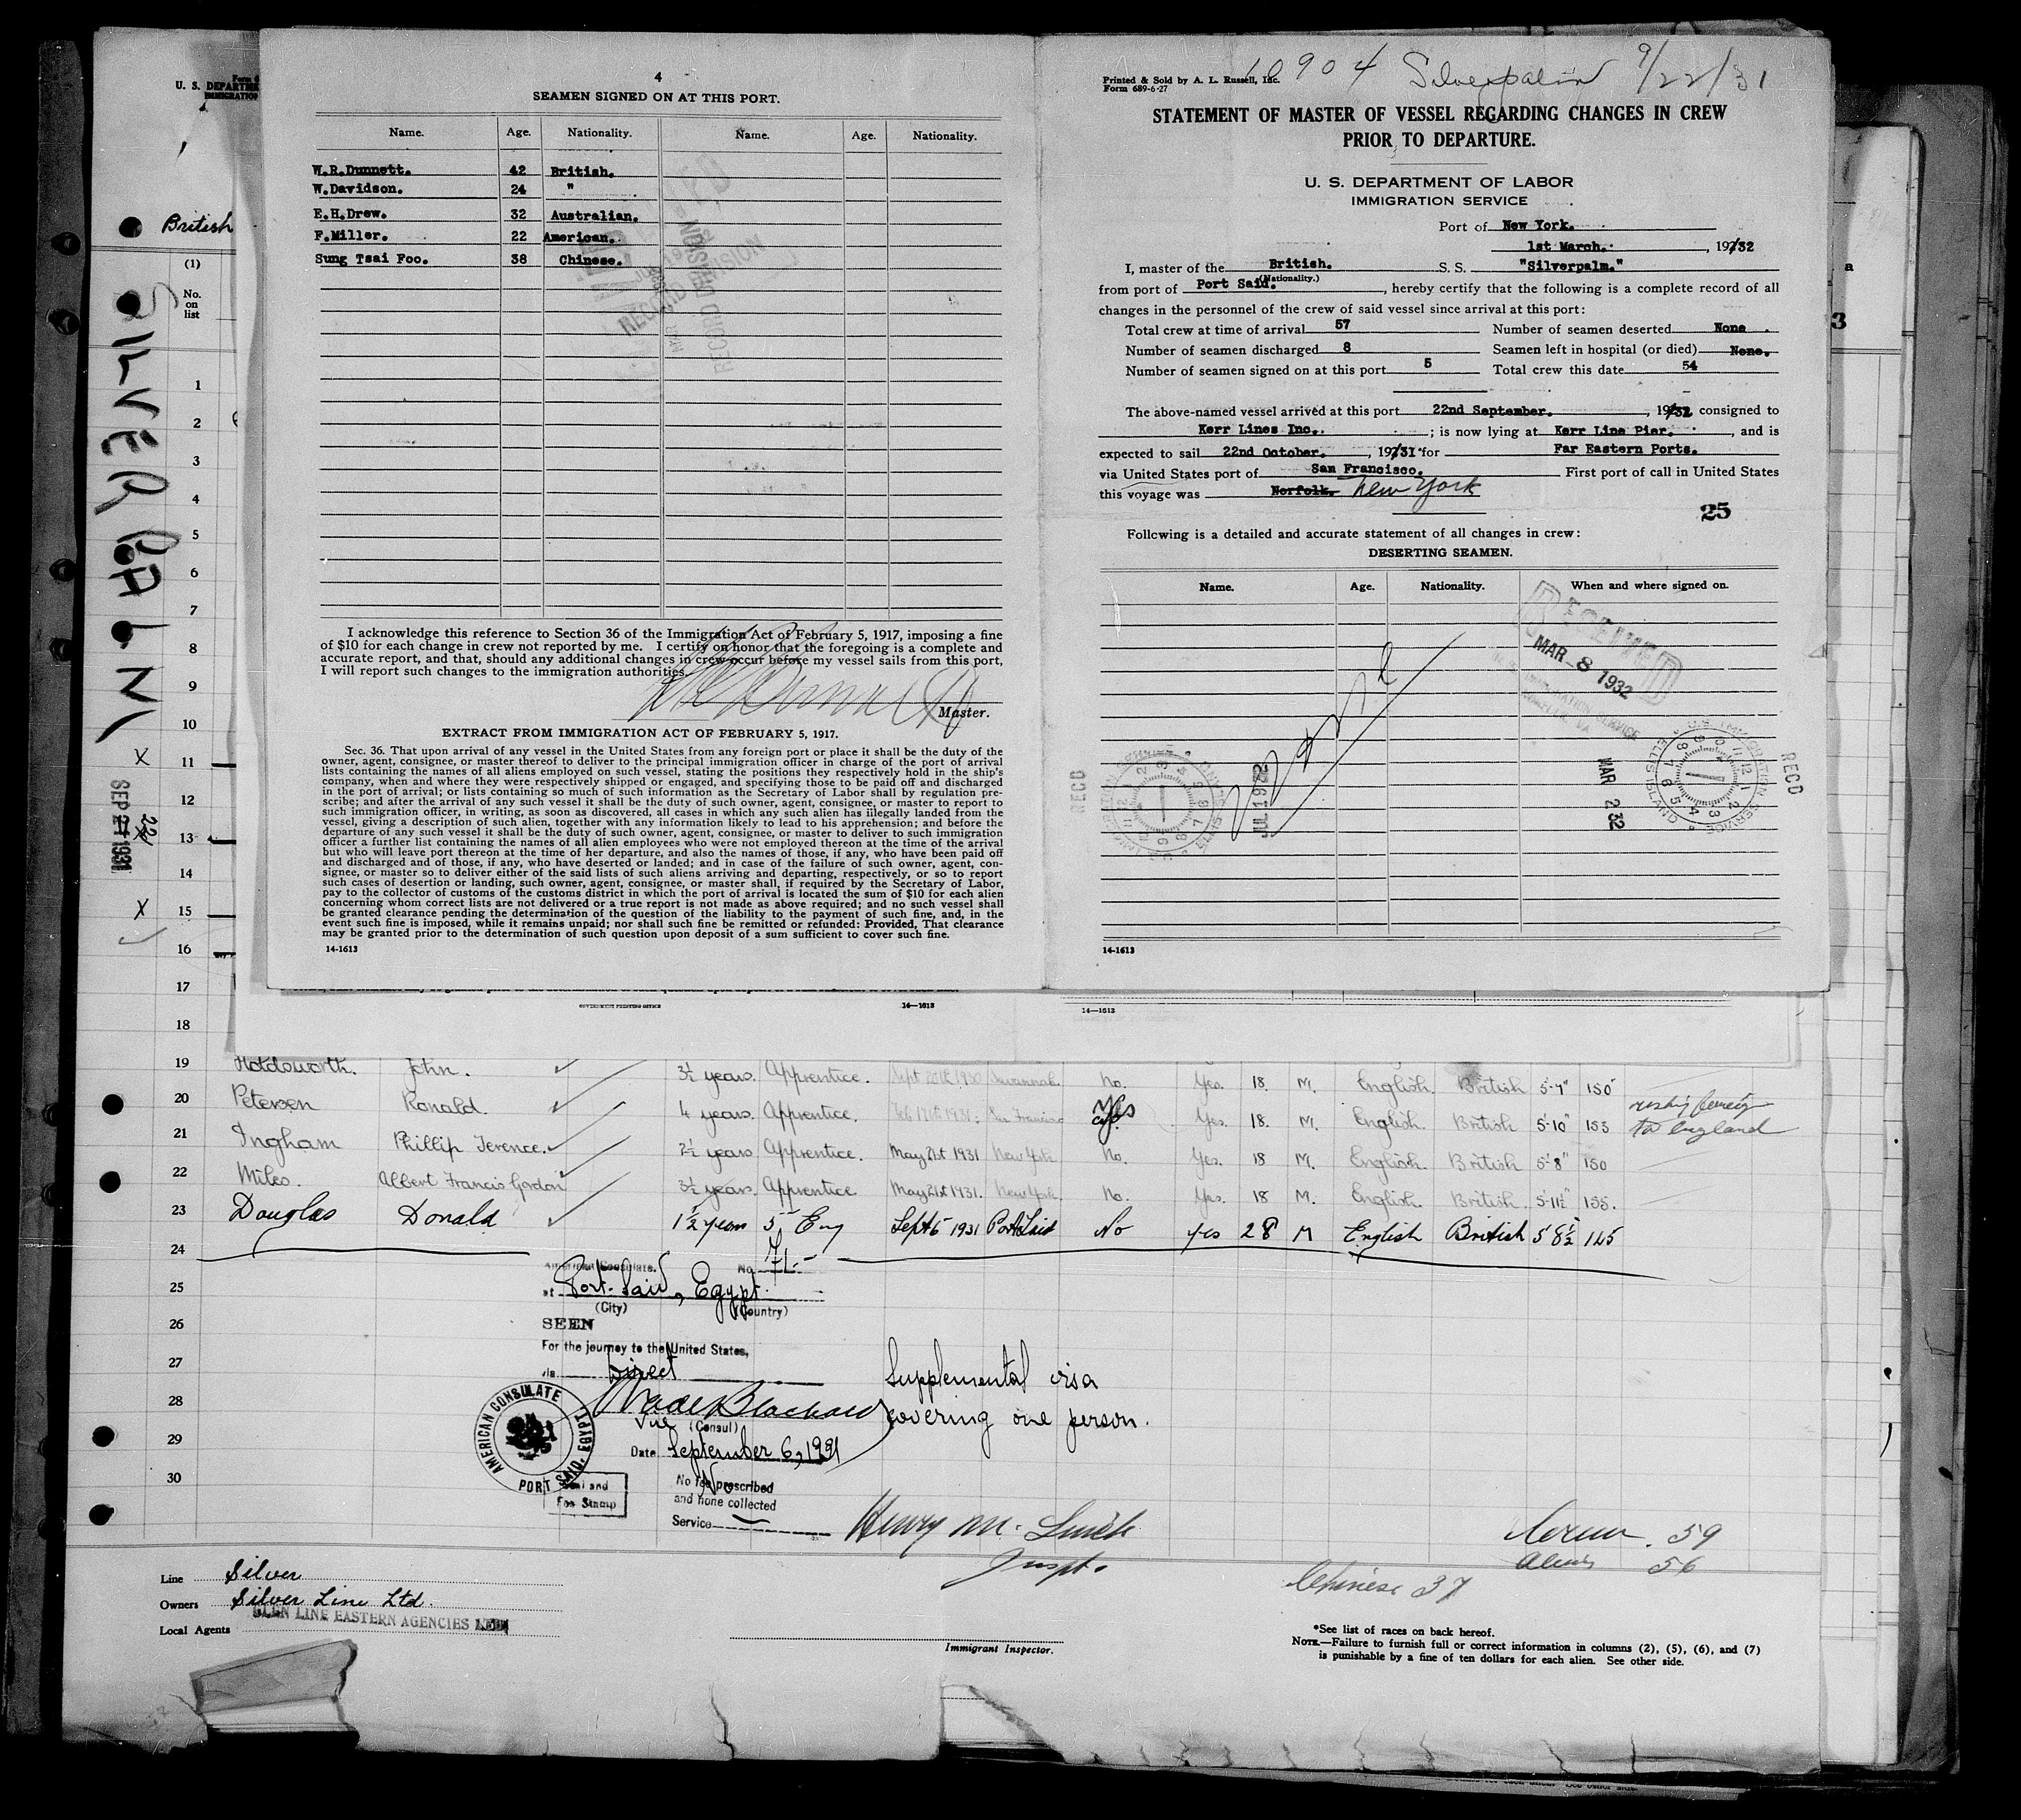 Form 6
U. S. DEPARTME
IMMIGRATION
British
(1)
No.
on
list
SILVERPALM
4
SEAMEN SIGNED ON AT THIS PORT.
Name. Age. Nationality. Name. Age. Nationality.
W.R.Dunnett. 42 British.
W.Davidson. 24 "
E.H.Drew. 32 Australian.
F.Miller. 22 American.
Sung Tsai Foo. 38 Chinese.
RECORD DIVISION
I acknowledge this reference to Section 36 of the Immigration Act of February 5, 1917, imposing a fine
of $10 for each change in crew not reported by me. I certify on honor that the foregoing is a complete and
accurate report, and that, should any additional changes in crew occur before my vessel sails from this port,
I will report such changes to the immigration authorities.
Master.
EXTRACT FROM IMMIGRATION ACT OF FEBRUARY 5, 1917.
Sec. 36. That upon arrival of any vessel in the United States from any foreign port or place it shall be the duty of the
owner, agent, consignee, or master thereof to deliver to the principal immigration officer in charge of the port of arrival
lists containing the names of all aliens employed on such vessel, stating the positions they respectively hold in the ship's
company, when and where they were respectively shipped or engaged, and specifying those to be paid off and discharged
in the port of arrival; or lists containing so much of such information as the Secretary of Labor shall by regulation pre-
scribe; and after the arrival of any such vessel it shall be the duty of such owner, agent, consignee, or master to report to
such immigration officer, in writing, as soon as discovered, all cases in which any such alien has illegally landed from the
vessel, giving a description of such alien, together with any information likely to lead to his apprehension; and before the
departure of any such vessel it shall be the duty of such owner, agent, consignee, or master to deliver to such immigration
officer a further list containing the names of all alien employees who were not employed thereon at the time of the arrival
but who will leave port thereon at the time of her departure, and also the names of those, if any, who have been paid off
and discharged and of those, if any, who have deserted or landed; and in case of the failure of such owner, agent, con-
signee, or master so to deliver either of the said lists of such aliens arriving and departing, respectively, or so to report
such cases of desertion or landing, such owner, agent, consignee, or master shall, if required by the Secretary of Labor,
pay to the collector of customs of the customs district in which the port of arrival is located the sum of $10 for each alien
concerning whom correct lists are not delivered or a true report is not made as above required; and no such vessel shall
be granted clearance pending the determination of the question of the liability to the payment of such fine, and, in the
event such fine is imposed, while it remains unpaid; nor shall such fine be remitted or refunded: Provided, That clearance
may be granted prior to the determination of such question upon deposit of a sum sufficient to cover such fine.
14-1613
Printed & Sold by A. L. Russell, Inc.
Form 689-6-27
10904 Silverpalm 9/22/31
STATEMENT OF MASTER OF VESSEL REGARDING CHANGES IN CREW
PRIOR TO DEPARTURE.
U. S. DEPARTMENT OF LABOR
IMMIGRATION SERVICE
Port of New York.
1st March. , 19732
I, master of the British. S. S. "Silverpalm."
(Nationality.)
from port of Port Said. , hereby certify that the following is a complete record of all
changes in the personnel of the crew of said vessel since arrival at this port:
Total crew at time of arrival 57 Number of seamen deserted None
Number of seamen discharged 8 Seamen left in hospital (or died) None.
Number of seamen signed on at this port 5 Total crew this date 54
The above-named vessel arrived at this port 22nd September. , 1932 consigned to
Kerr Lines Inc. ; is now lying at Kerr Line Pier. , and is
expected to sail 22nd October. , 19/31 for Far Eastern Ports.
via United States port of San Francisco. First port of call in United States
this voyage was Norfolk. New York
25
Following is a detailed and accurate statement of all changes in crew:
DESERTING SEAMEN.
Name. Age. Nationality. When and where signed on.
RECEIVED
MAR 8 1932
U.S. IMMIGRATION SERVICE
ELLIS ISLAND
MAR 2 32
RECD
RECD
14-1613
1
2
3
4
5
6
7
8
9
10
X 11
12
13
14
X 15
16
17
18
SEP 1931
22
a
3
GOVERNMENT PRINTING OFFICE 14—1613 14—1613
19 Holdsworth. John. 3½ years. Apprentice. Sept 20th 1930 Savannah. No. Yes. 18. M. English. British 5-7" 150
20 Petersen Ronald. 4 years. Apprentice. Feb 17th 1931. San Francisco Yes Yes. 18. M. English. British 5-10" 155
to England
21 Ingham Phillip Terence. 2½ years Apprentice. May 21st 1931 New York No. Yes. 18 M. English. British 5-8" 150
22 Miles. Albert Francis Gordon 3½ years. Apprentice May 21st 1931. New York. No. Yes. 18 M. English. British. 5-11½" 155.
23 Douglas Donald 1½ years 5 Eng Sept 5 1931 Port Said No yes 28 M English British 5 8½ 145
24
25
26
27
28
29
30
American Consulate. No. 71.-
at Port-Said, Egypt.
(City) (Country)
SEEN
For the journey to the United States,
via Direct
Vice (Consul)
Date September 6, 1931
AMERICAN CONSULATE
PORT SAID. EGYPT
Seal and
Fee Stamp
No fee prescribed
and none collected
Service
Supplemental visa
covering one person.
Henry M. Smith
Inspt.
Crew. 59
Aliens 56
Chinese 37
Line Silver
Owners Silver Line Ltd.
Local Agents GLEN LINE EASTERN AGENCIES LTD
Immigrant Inspector.
*See list of races on back hereof.
NOTE.—Failure to furnish full or correct information in columns (2), (5), (6), and (7)
is punishable by a fine of ten dollars for each alien. See other side.